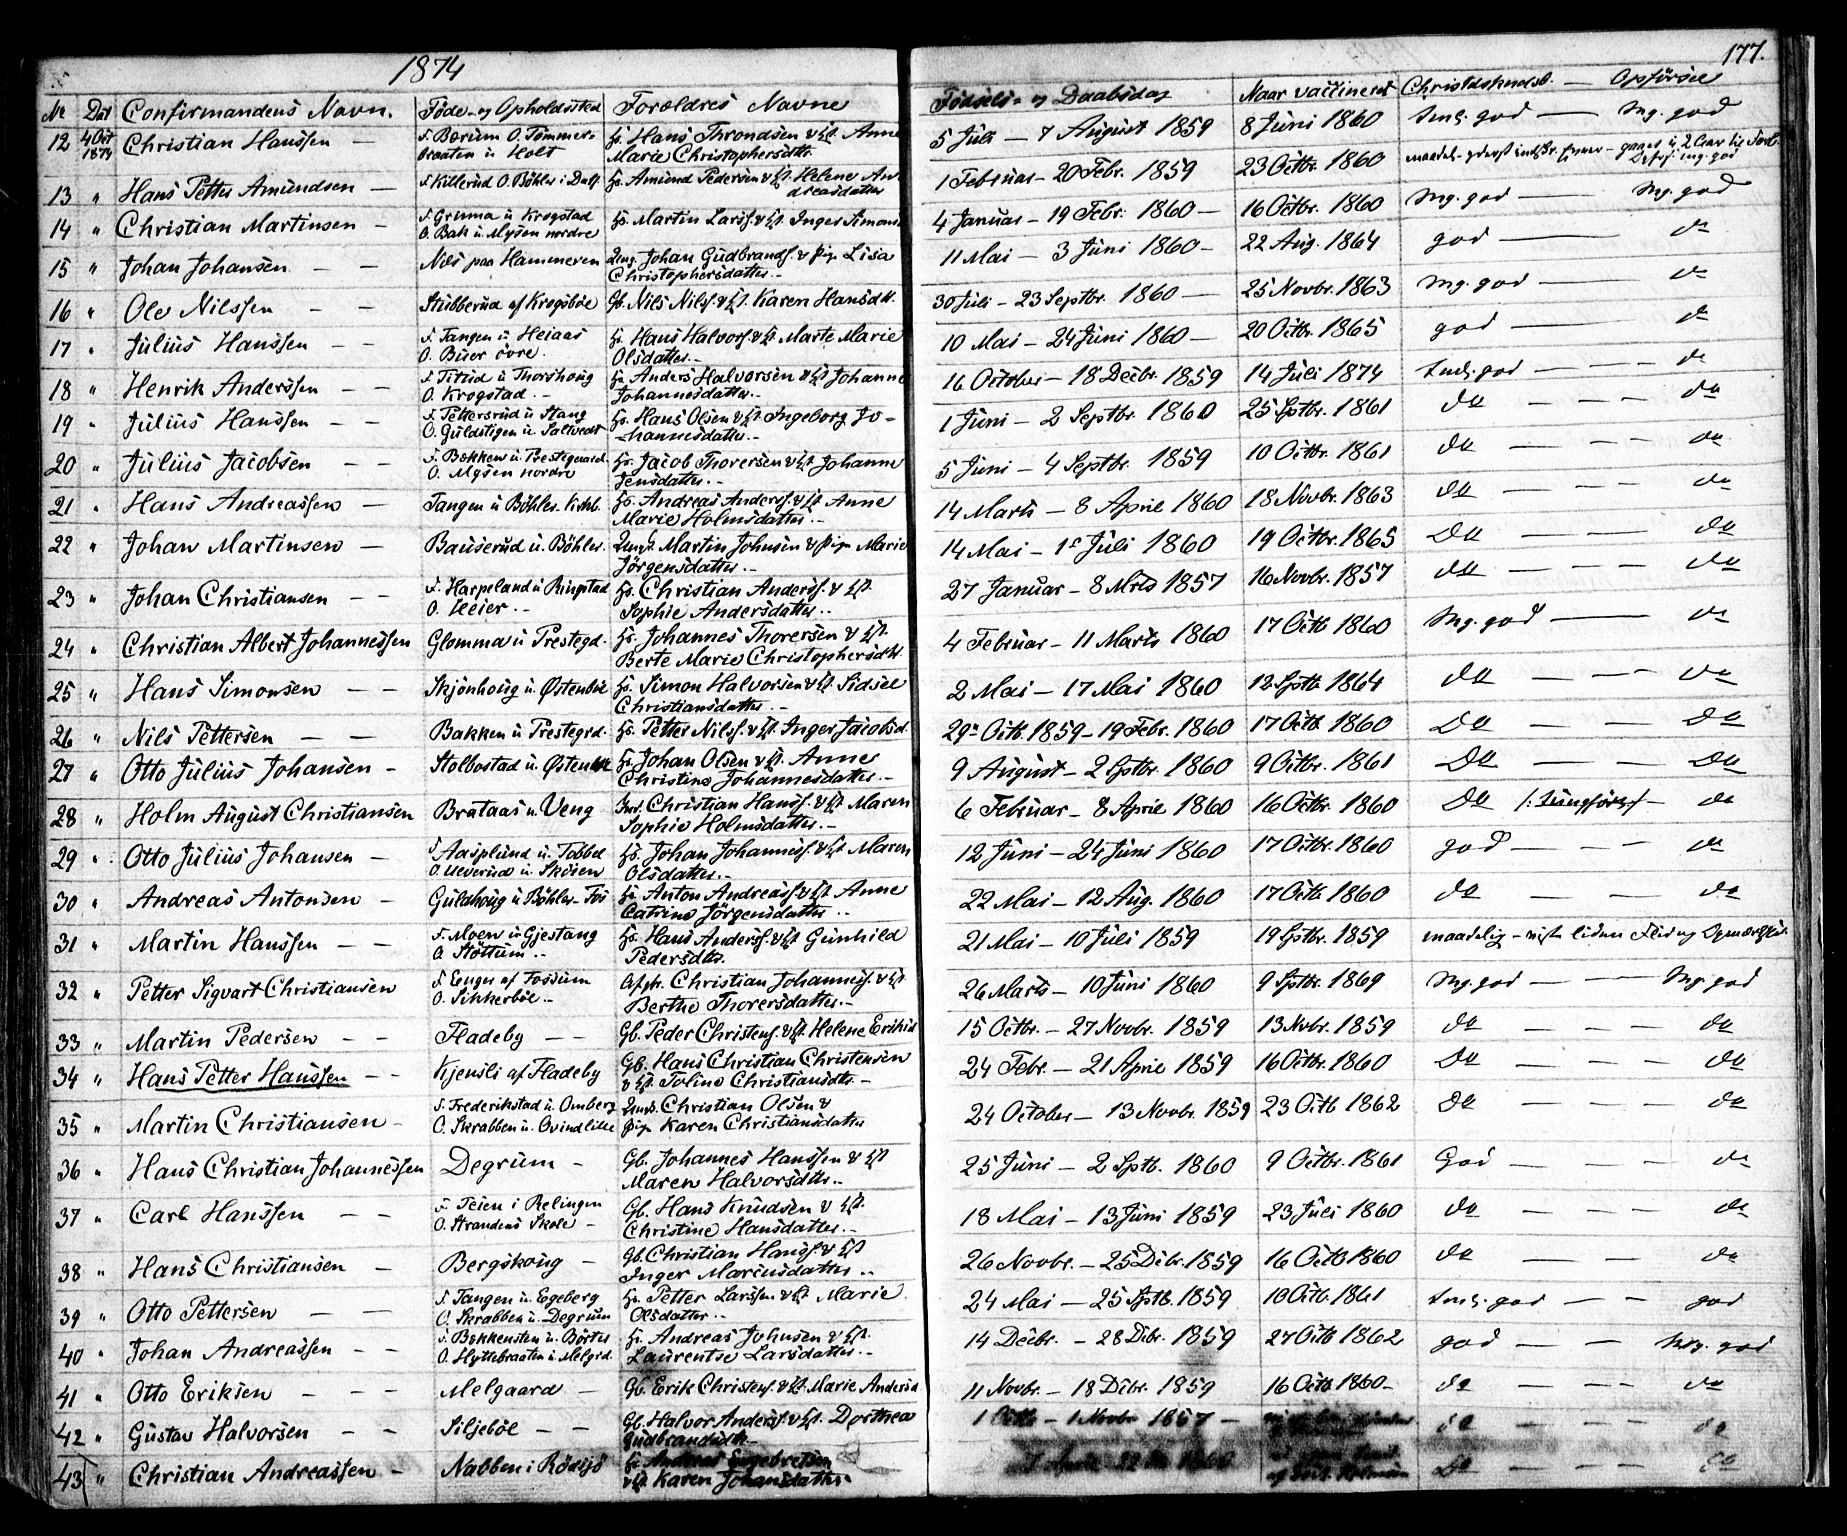 1874
177.
Nr Dat Confirmandens Navn. Føde- og Opholdssted Forældres Navne Fødsels- og Daabsdag Naar vaccineret Christdskundsk. — Opførsel
12 4 Oct 1874 Christian Hanssen — F. Bærum O. Tømmerbraaten u Holt Hans Throndsen & Anne Marie Christophersdttr. 5 Juli — 7 August 1859 8 Juni 1860 god — Mg. god
13 " Hans Petter Amundsen — F. Killerud O. Bøhler i Amund Pedersen & Helene Andreasdatter 1 Februar — 20 Febr. 1859 23 Octbr. 1860 mg. god
14 " Christian Martinsen — F. Grinna u Krogstad O. Bak u. Mysen nordre Martin Larss. & Inger Simons 4 Januar — 19 Febr. 1860 — 16 Octbr. 1860 Mg. god — Mg. god
15 " Johan Johansen — — Nes paa Hammeren Ung. Johan Gudbrands. & Pige Lisa Christophersdatter. — 11 Mai — 3 Juni 1860 — 22 Aug. 1864 god — do
16 " Ole Nilssen — — Stubberud af Krogsbøe Gb. Nils Nils. & Karen Hansdtr. 30 Juli — 23 Septbr. 1860 — 25 Novbr. 1863 Mg. god — do
17 " Julius Hanssen — — F. Tangen u Heiaas O. Buer øvre. Hans Halvors. & Marte Marie Olsdatter. — 10 Mai — 24 Juni 1860 — 20 Octbr. 1865 god — do
18 " Henrik Anderssen — — F. Titud u Thorshoug O. Krogstad. — Anders Halvorsen & Johanne Johannesdatter. — 16 October — 18 Decbr. 1859 14 Juli 1874 god — do
19 " Julius Hanssen — — F. Pettersrud u Stang O. Guldstigen u Saltvedt Hans Olsen & Ingeborg Johannesdatter. — 1 Juni — 2 Septbr. 1860 25 Sptbr. 1861 do — — — do
20 " Julius Jacobsen — — F. Bækken u Prestegaard O. Mysen nordre Jacob Thorersen & Johanne Jensdatter. — 5 Juni — 4 Septbr. 1859 10 Octbr. 1861 do — — — do
21 " Hans Andreassen — Tangen u Bøhler Andreas Anders. & Anne Marie Holmsdatter. — 14 Marts — 8 April 1860 18 Novbr. 1863 do — — — do
22 " Johan Martinsen — Bauserud u. Bøhler. Martin Johnsen & Pige Marie Jørgensdatter. — 14 Mai — 1 Juli 1860 19 Octbr. 1865 Do — — — do
23 " Johan Christiansen — — F. Harpeland u Ringstad O. Heier. — Christian Anders. & Sophie Andersdatter. 27 Januar — 8 Mrts 1857 16 Novbr. 1857 do — — — do
24 " Christian Albert Johannessen Glomma u Prestegd. Johannes Thorersen & Berte Marie Christophersdtr. 4 Februar — 11 Marts 1860 17 Octb 1860 Mg. god — do
25 " Hans Simonsen — — Skjønhoug u Østenbøe Simon Halvorsen & Sidsel Christiansdatter. — 2 Mai — 17 Mai 1860 12 Sptb 1864 do — — — do
26 " Nils Pettersen — — Bakken u Prestegrd. Petter Nils. & Inger Jacobsd. 29 Octb. 1859 — 19 Febr. 1860 17 Octb. 1860 Do — — — Do
27 " Otto Julius Johansen — Stolbostad u Østenbøe Johan Olsen & Anne Christine Johannesdatter. — 9 August — 2 Sptbr. 1860 9 Octbr. 1861 Do — — — Do
28 " Holm August Christiansen Brataas u. Veng Christian Hans. & Maren Sophie Holmsdatter. — 6 Februar — 8 April 1860 16 Octbr. 1860 Do — do
29 " Otto Julius Johansen — F Aasplund u. Tobbel O. Ueverud u. Skøien Johan Johannes. & Maren Olsdatter. — 12 Juni — 24 Juni 1860 17 Octbr. 1860 god — — — do
30 " Andreas Antonsen — Guldhoug u Bøhler Anton Andreass. & Anne Catrine Jørgensdatter. 22 Mai — 12 Aug. 1860 17 Octb 1860 do — — — do
31 " Martin Hanssen — — F. Moen u Gjestang O Støttum. Hans Anders. & Gunhild Pedersdtr. 21 Mai — 10 Juli 1859 19 Sptbr. 1859 maadelig — liden Flid og
32 " Petter Sigvart Christiansen F Enger af Fossum O. Sikkerbøe. — Christian Johannes. & Berthe Thorersdatter. — 26 Marts — 10 Juni 1860 9 Sptbr. 1869 Mg. god — — Mg. god
33 " Martin Pedersen — — Fladeby — — Gb. Peder Christens. & Helene Eriksd 15 Octbr. — 27 Novbr. 1859 13 Nvbr. 1859 do — — — do
34 " Hans Petter Hanssen — — Kjensli af Fladeby Gb. Hans Christian Christensen & Joline Christiansdtr. — 24 Febr. — 21 April 1859 16 Octbr. 1860 Do — — — do
35 " Martin Christiansen — F. Frederikstad u. Omberg O. Skrabben u. Ovind lille Christian Olsen & Pige Karen Christiansdatter 24 October — 13 Novbr. 1859 23 Octb 1862 Do — — — do
36 " Hans Christian Johannessen Degrum — Gb. Johannes Hanssen & Maren Halvorsdttr. — 25 Juni — 2 Sptb. 1860 9 Octbr. 1861 God — — — do
37 " Carl Hanssen — — F. Teien i Relingen O. Strandens Skole — Gb. Hans Knudsen & Christine Hansdatter. — 18 Mai — 13 Juni 1859 23 Juli 1860 do — — — do
38 " Hans Christiansen — Bergskoug — Gb. Christian Hanss. & Inger Mariusdatter. 26 Novbr. — 25 Dcbr. 1859 16 Octb 1860 do — — do
39 " Otto Pettersen — — F. Tangen u. Egeberg O. Skrabben u. Degrum Petter Larssen & Marie Olsdatter. 24 Mai — 25 Sptb. 1859 10 Octb. 1861 god — — god
40 " Johan Andreassen — — F. Bekkensten u. Børter O. Hyttebraaten u. Melgrd. Andreas Johnsen & Laurentse Larsdatter. — 14 Decbr. — 28 Dcbr. 1859 27 Octb 1862 god — — Mg. god
41 " Otto Eriksen — — — Melgaard — Gb. Erik Christens. & Marie Andersd 11 Novbr. — 18 Dcbr. 1859 16 Octb. 1860 — do — — — do
42 " Gustav Halvorsen — — Siljebøl — — Gb. Halvor Anders. & Dorthea Gudbrandsdtr. — 1 Octb — 1 Novbr 1857 — do — — — do
43 " Christian Andreassen — Nabben i Rødsjø Andreas Engebretsen & Karen Johansdatter April 1860 Do — — — do